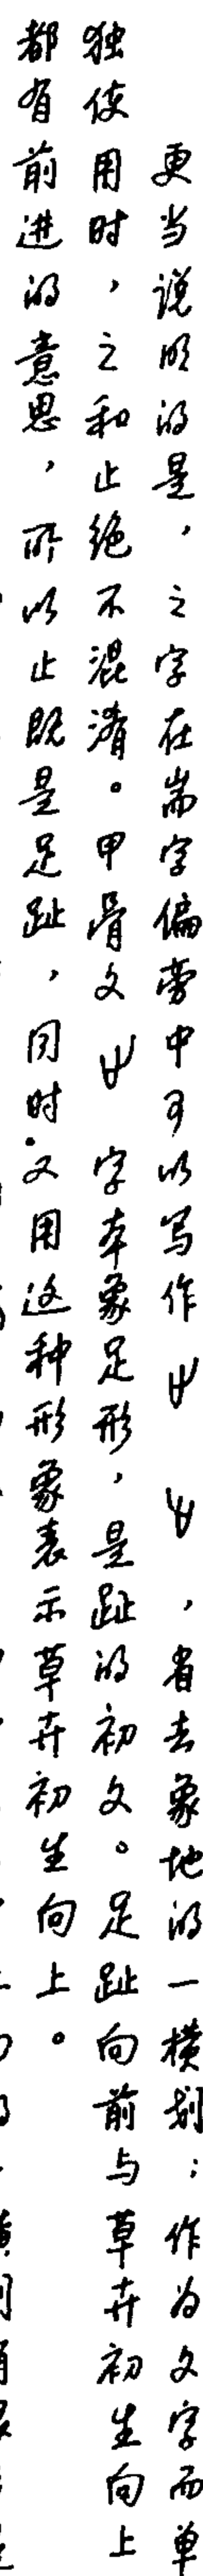 更当说明的是，之字在耑字偏旁中可以写作 ，省去象地的一横划；作为文字而单
独使用时，之和止绝不混淆。甲骨文 字本象足形，是趾的初文。足趾向前与草卉初生向上
都有前进的意思，所以止既是足趾，同时又用这种形象表示草卉初生向上。